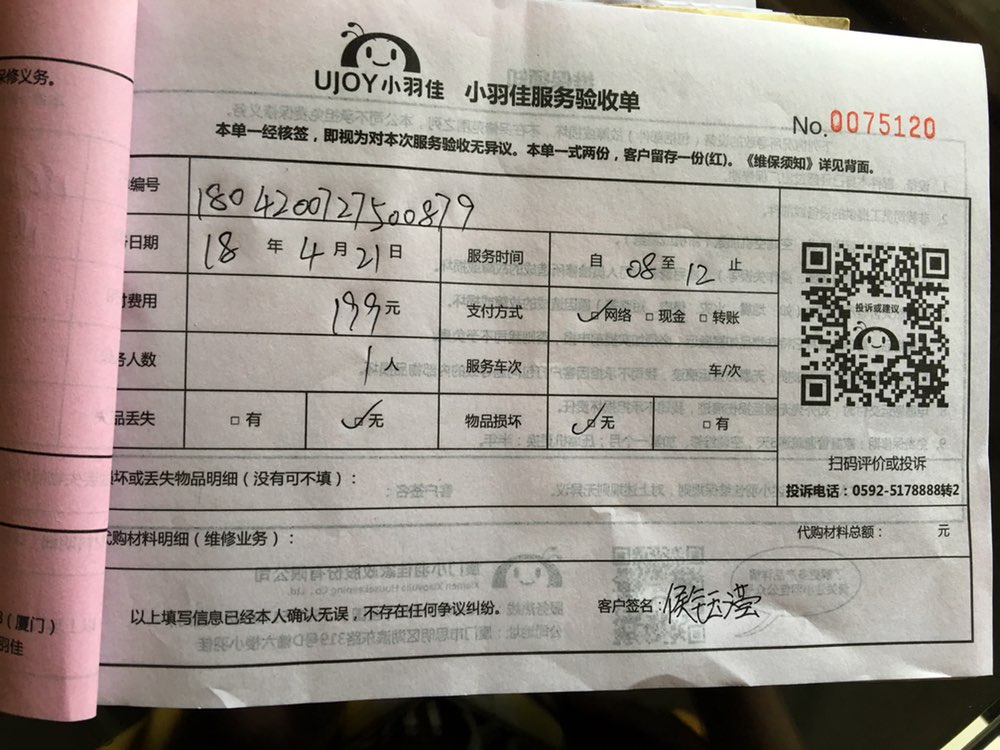 保修义务。
UJOY小羽佳 小羽佳服务验收单
No.0075120
本单一经核签，即视为对本次服务验收无异议。本单一式两份，客户留存一份(红)。《维保须知》详见背面。
编号 1804200727500879
日期 18 年 4 月 21 日 服务时间 自 08 至 12 止
费用 199 元 支付方式 ☑网络 □现金 □转账
人数 1 人 服务车次 车/次
品丢失 □有 ☑无 物品损坏 ☑无 □有
投诉或建议
扫码评价或投诉
投诉电话：0592-5178888转2
坏或丢失物品明细（没有可不填）：
购材料明细（维修业务）： 代购材料总额： 元
以上填写信息已经本人确认无误，不存在任何争议纠纷。 客户签名：
（厦门）
羽佳